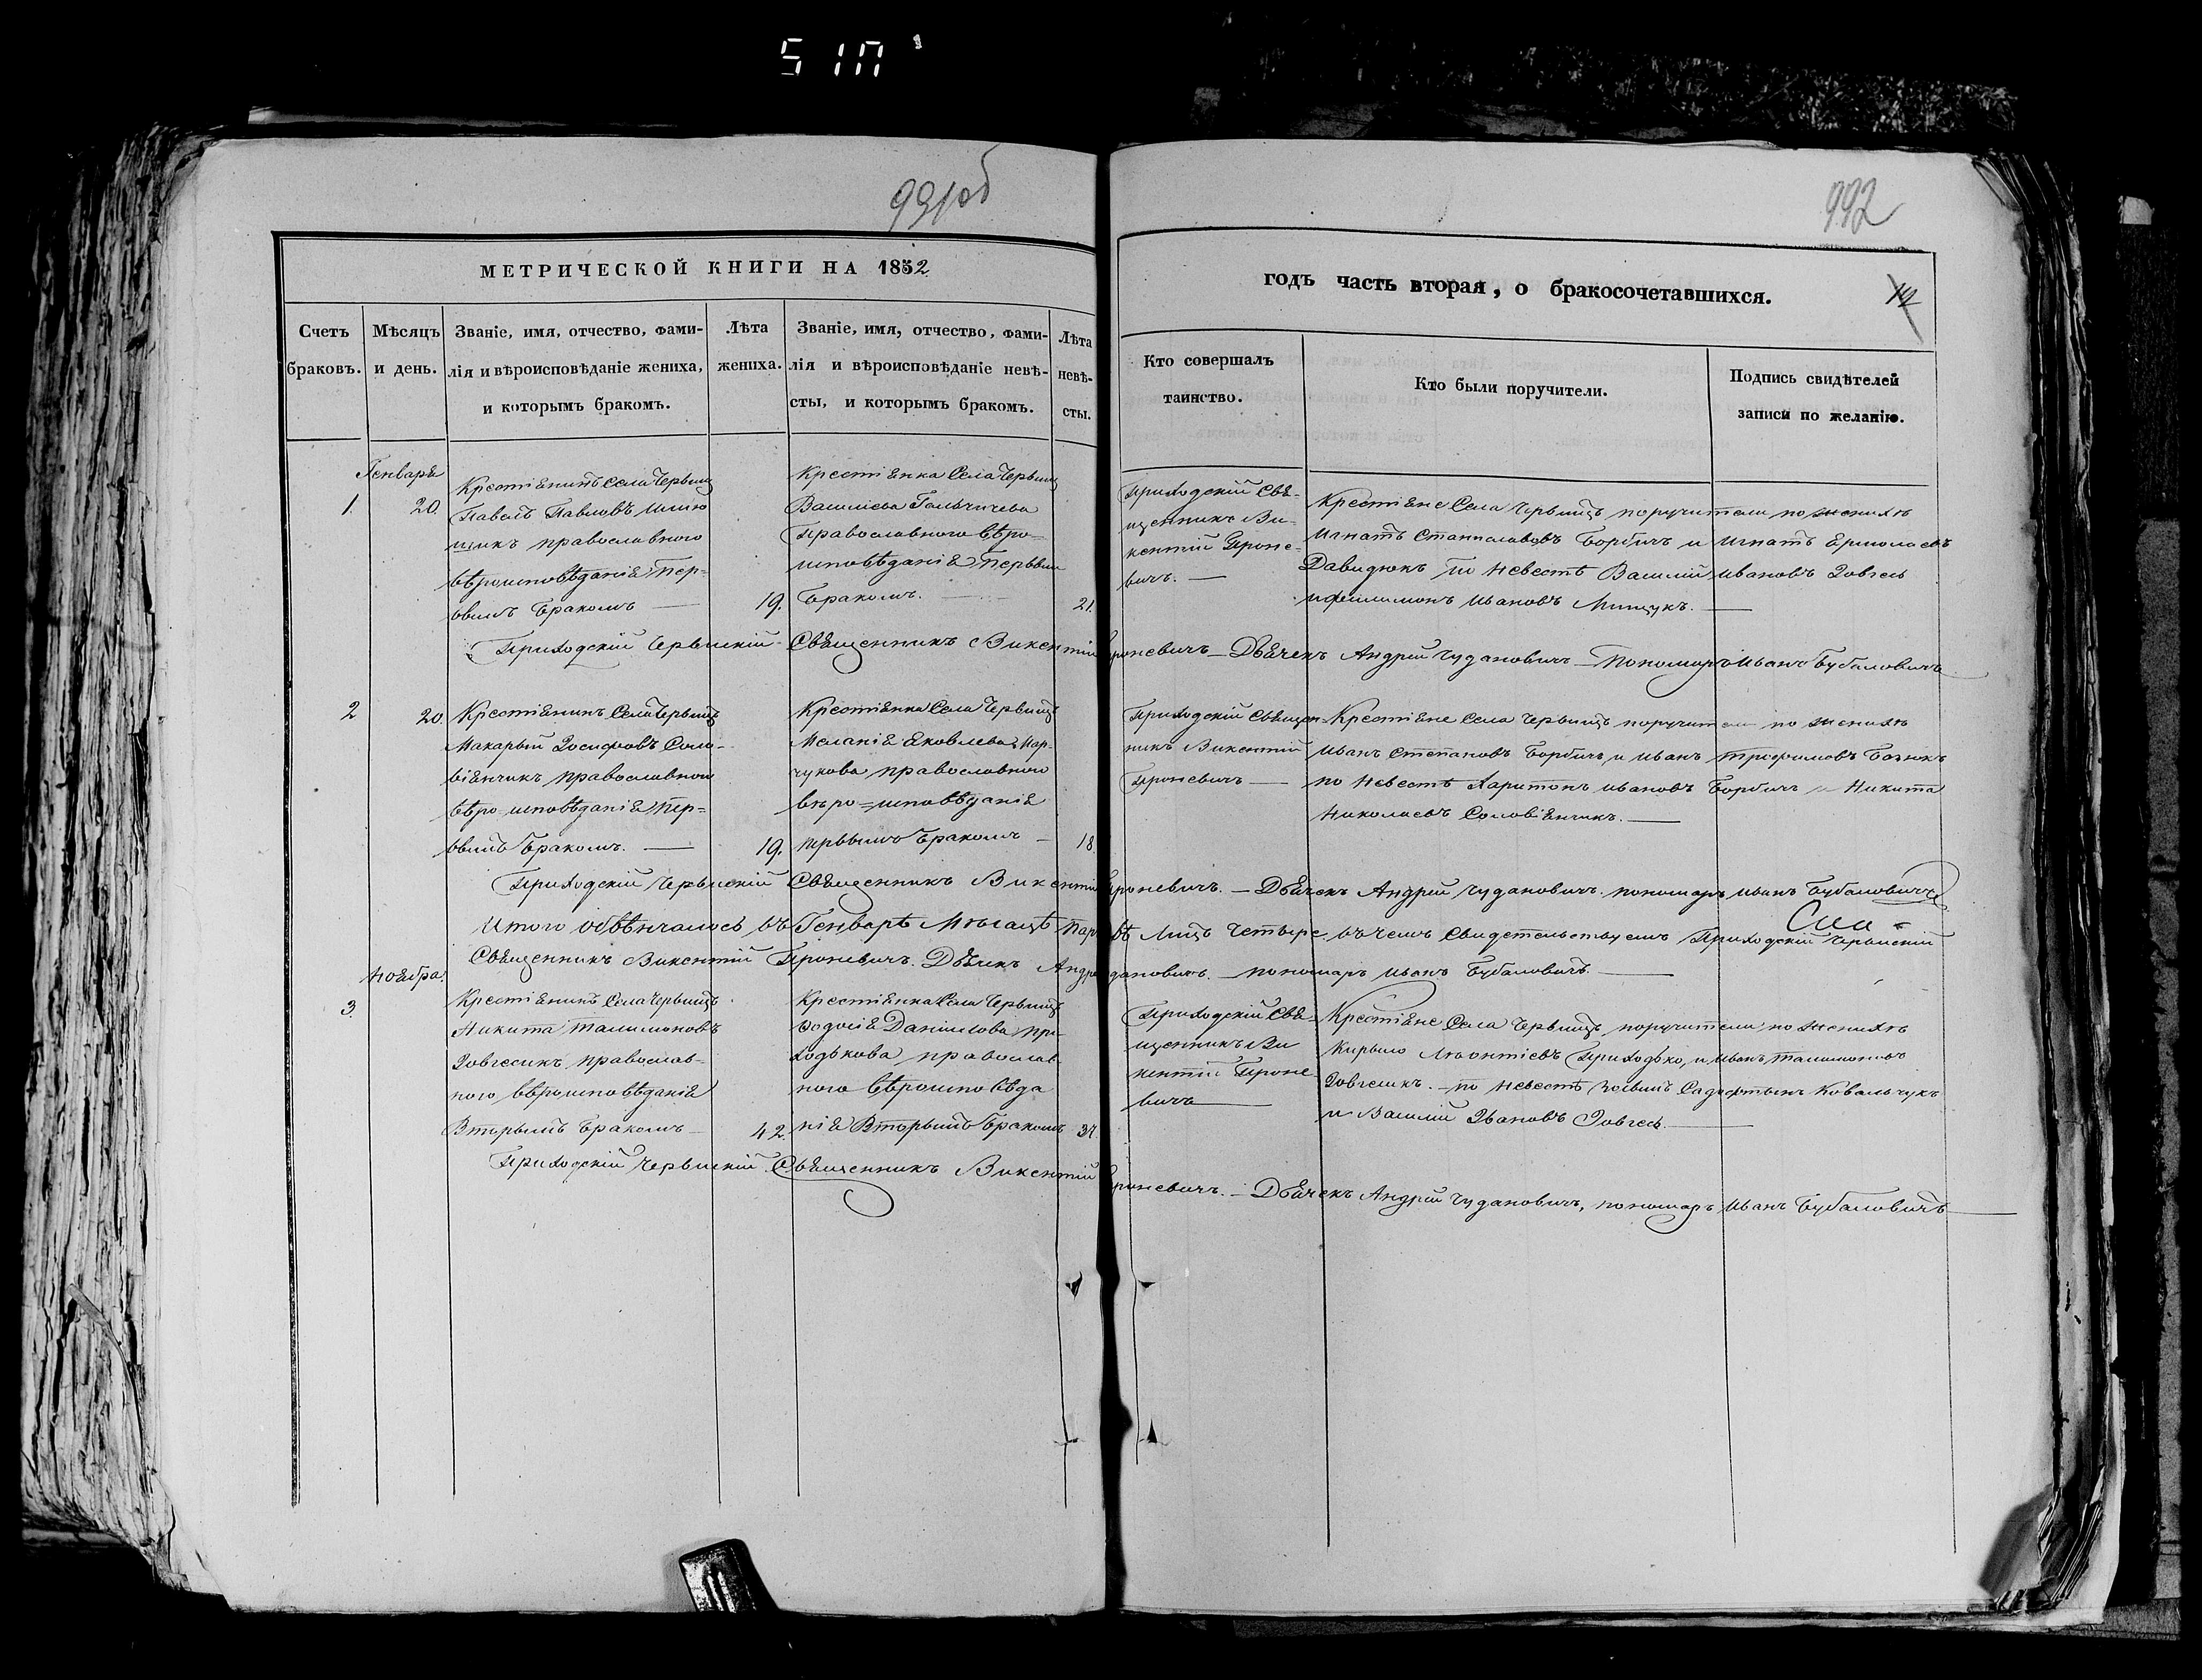 991об
992
МЕТРИЧЕСКОЙ КНИГИ НА 1852
годъ часть вторая, о бракосочетавшихся.
Счетъ
браковъ.
Мѣсяцъ
и день.
Званіе, имя, отчество, фами-
лія и вѣроисповѣданіе жениха,
и которымъ бракомъ.
Лѣта
жениха.
Званіе, имя, отчество, фами-
лія и вѣроисповѣданіе невѣ-
сты, и которымъ бракомъ.
Лѣта
невѣ-
сты.
Кто совершалъ
таинство.
Кто были поручители.
Подпись свидѣтелей
записи по желанію.
Генваря
1. 20.
Крестіянинъ Села Червищ
Павелъ Павловъ
православного
вѣроисповѣданія Пер-
вымъ Бракомъ
19.
Крестіянка Села Червищ
Василіева
Православного вѣро-
исповѣданія Первым
Бракомъ.
21.
Приходскій Свя-
щенникъ Ви-
кентій Проне-
вичъ.
Крестіяне Села Червищъ поручители по женихѣ
Игнатъ Станиславовъ Борбичъ и Игнатъ Ермолаевъ
Давидюкъ по невестѣ Василій Ивановъ Довгель
и филимонъ Ивановъ Мищукъ.
Приходскій Червискій Священникъ Викентій Проневичъ Дьячекъ Андрей Чудановичъ Пономаръ Иванъ Бубаловичъ
2 20.
Крестіянинъ Села Червищъ
Макарый Іосифовъ Соло-
віянчикъ православного
вѣро-исповѣданія Пер-
вымъ Бракомъ.
19.
Крестіянка Села Червищъ
Меланія Яковлева Мар-
чукова православного
вѣро-исповѣданія
первымъ Бракомъ
18.
Приходскій Священ-
никъ Викентій
Проневичъ
Крестіяне Села Червищъ поручители по женихѣ
Иванъ Степановъ Борбичъ и Иванъ Трофимовъ Базюкъ
по невестѣ Харитонъ Ивановъ Борбичъ и Никита
Николаевъ Соловіянчикъ.
Приходскій Червискій Священникъ Викентій Проневичъ. Дьячекъ Андрей Чудановичъ. пономаръ Иванъ Бубаловичъ
Итого обвѣнчалось въ Генварѣ Мѣсяцѣ Пар двѣ Лицъ Четыре въ чемъ Свидетельствуемъ Приходскій Червискій
Священникъ Викентій Проневичъ. Дьячекъ Андрей Чудановичъ. пономаръ Иванъ Бубаловичъ
Ноября
3.
Крестіянинъ Села Червищъ
Никита Талимоновъ
Довгеликъ православ-
ного вѣроисповѣданія
Вторымъ Бракомъ
42.
Крестіянка Села Червищъ
Феодосія Даніилова При-
ходькова православ
ного вѣроисповѣда
нія Вторымъ Бракомъ
37.
Приходскій Свя-
щенникъ Ви
кентій Проне-
вичъ
Крестіяне Села Червищъ поручители по женихѣ
Кирыло Леонтіевъ Приходько, и Иванъ Талимоновъ
Довгеликъ. по невестѣ Ковальчукъ
и Василій Ивановъ Довгель.
Приходскій Червискій Священникъ Викентій Проневичъ. Дьячекъ Андрей Чудановичъ, пономаръ Иванъ Бубаловичъ